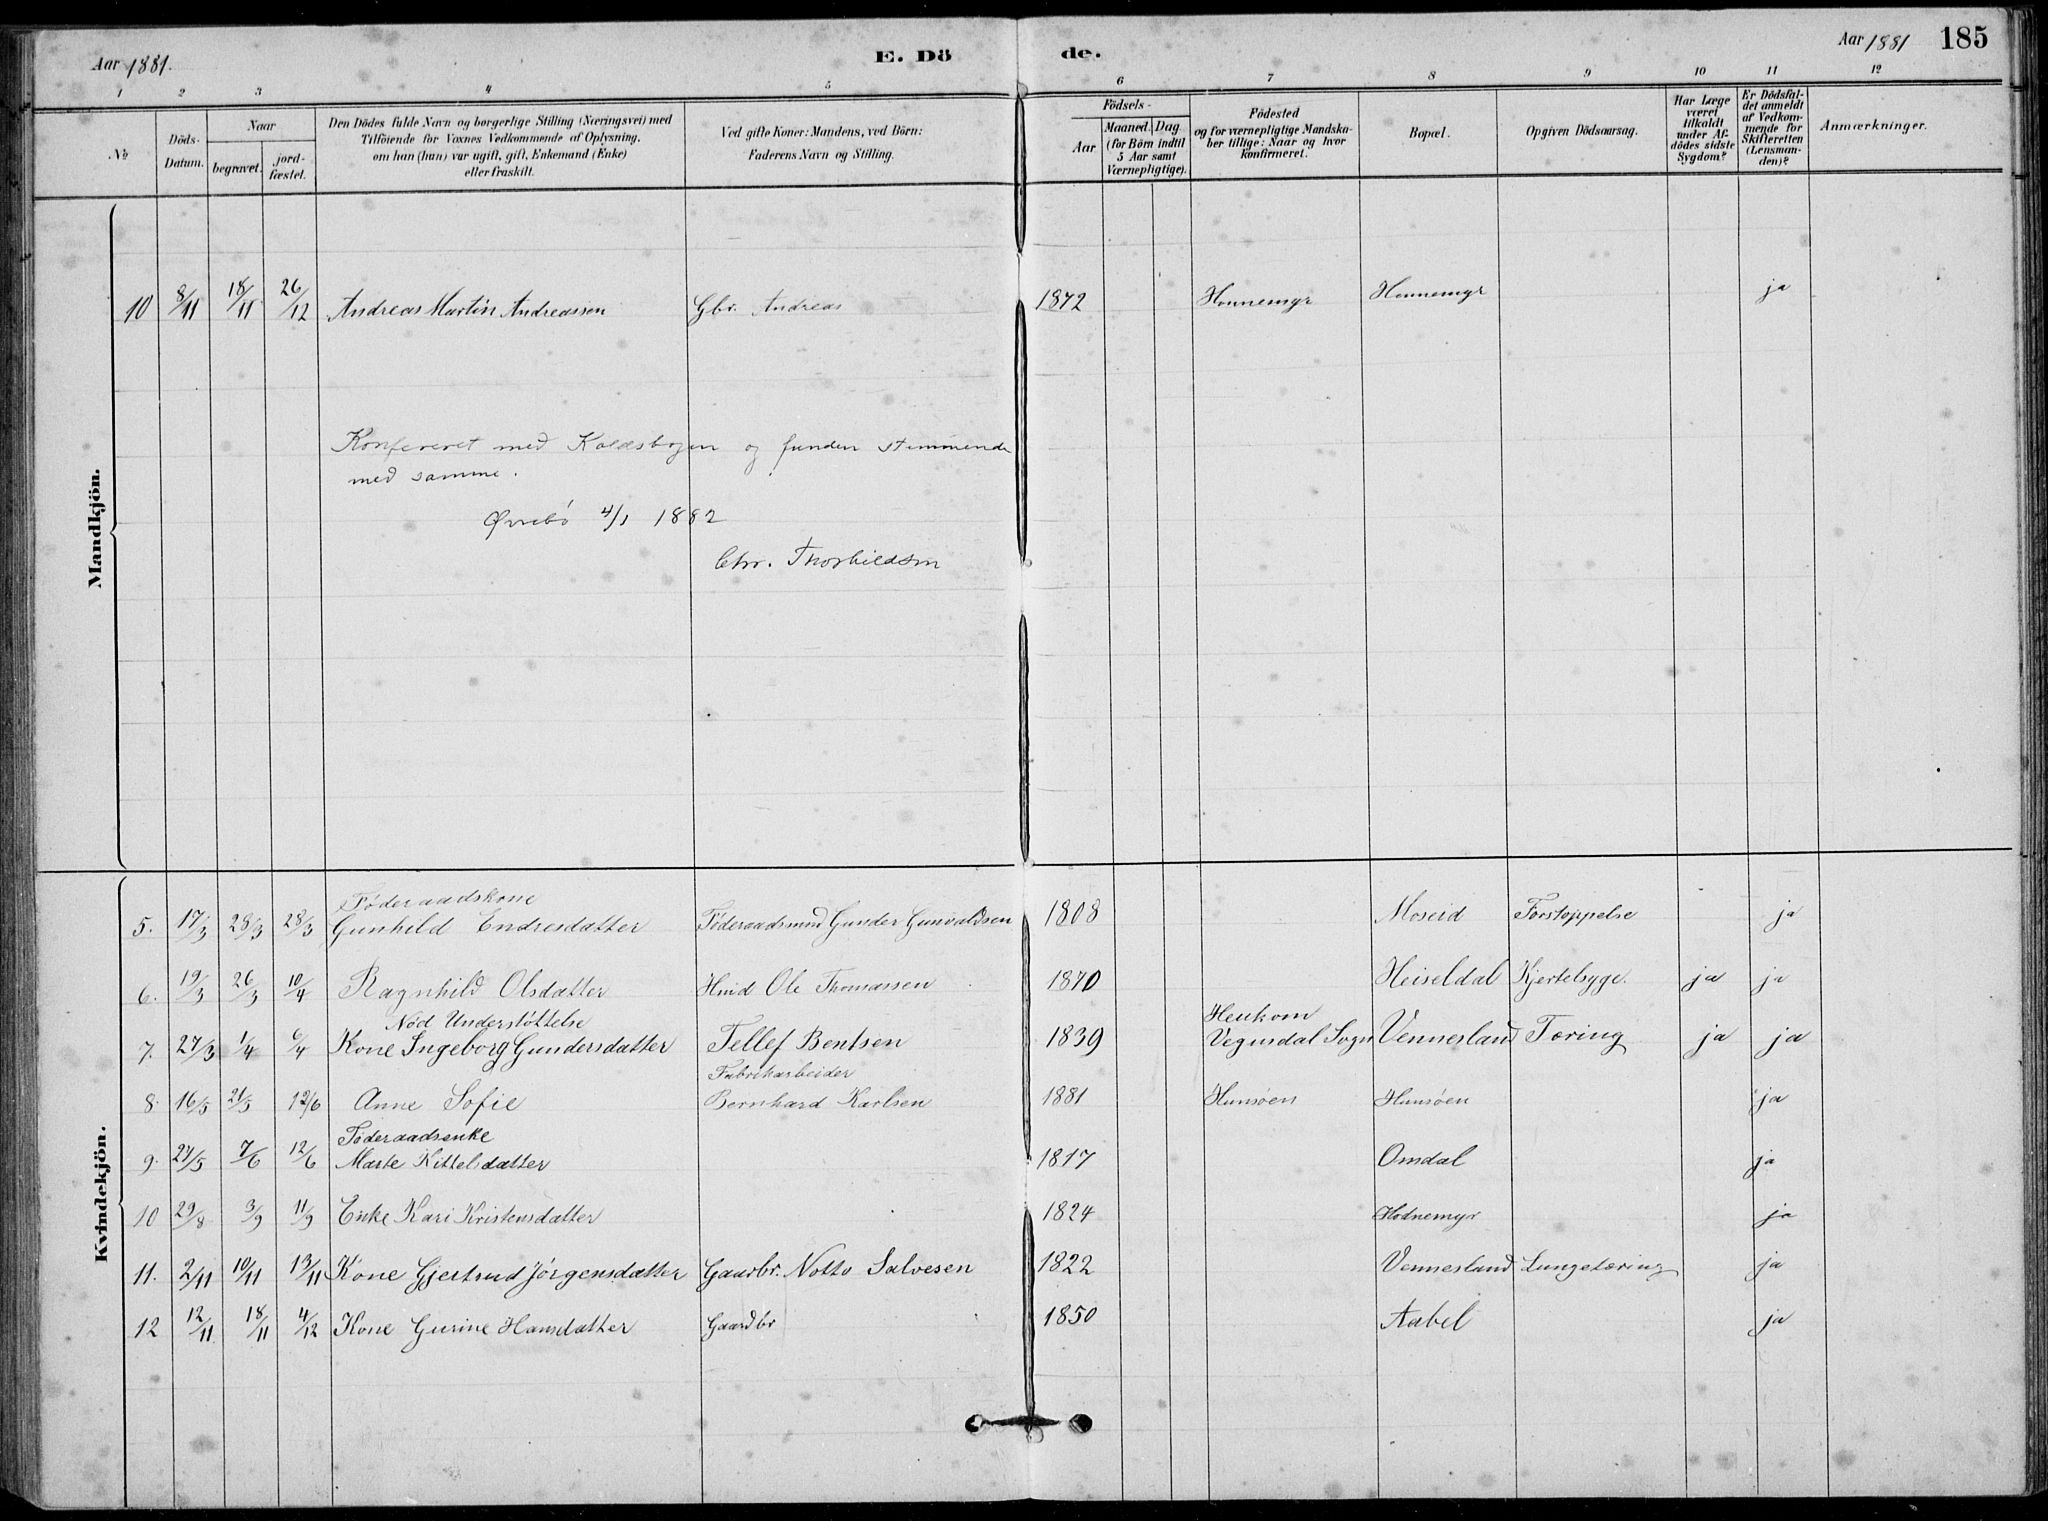 Aar 1881.
E. Dö
de.
Aar 1881
185
1 2 3 4 5 6 7 8 9 10 11 12
No
Döds-Datum.
Naar
begravet.
jord-fæstet.
Den Dödes fulde Navn og borgerlige Stilling (Næringsvei) med
Tilföiende for Voxnes Vedkommende af Oplysning,
om han (hun) var ugift, gift, Enkemand (Enke)
eller fraskilt.
Ved gifte Koner: Mandens, ved Börn:
Faderens Navn og Stilling.
Födsels-
Aar
Maaned. Dag
(for Börn indtil
5 Aar samt
Værnepligtige).
Födested
og for værnepligtige Mandska-
ber tillige: Naar og hvor
konfirmeret.
Bopæl.
Opgiven Dödsaarsag.
Har Læge
været
tilkaldt
under Af-
dödes sidste
Sygdom?
Er Dödsfal-
det anmeldt
af Vedkom-
mende for
Skifteretten
(Lensman-
den)?
Anmærkninger.
Mandkjön.
10 8/11 18/11 26/12 Andreas Martin Andreassen Gbr. Andreas 1872 Honnemyr Honnemyr ja
Konfereret med Kaldsbogen og funden stemmende
med samme.
Øvrebö 4/1 1882
Chr. Thorkildsen
Kvindekjön.
Föderaadskone
5. 17/3 28/3 28/3 Gunhild Endresdatter Föderaadsmand Gunder Gunvaldsen 1808 Moseid Forstoppelse ja
6. 19/3 26/3 10/4 Ragnhild Olsdatter Huid Ole Thomassen 1870 Heiseldal Kjertelsyge. ja ja
Nöd Understöttelse
Heukom
7. 27/3 1/4 6/4 Kone Ingeborg Gundersdatter Tellef Bentsen 1839 Vegusdal Sogn Vennesland Tæring ja ja
Fabrikarbeider
8. 16/5 21/5 12/6 Anne Sofie Bernhard Karlsen 1881 Hunsöen Hunsöen ja
Föderaadsenke
9. 27/5 7/6 12/6 Marte Kittelsdatter 1817 Omdal ja
10 29/8 3/9 11/9 Enke Kari Kristensdatter 1824 Hodnemyr ja
11. 2/11 10/11 13/11 Kone Gjertrud Jörgensdatter Gaardbr. Notto Salvesen 1822 Vennesland Lungetæring ja
12 12/11 18/11 4/12 Kone Gurine Hansdatter Gaardbr 1850 Aabel ja